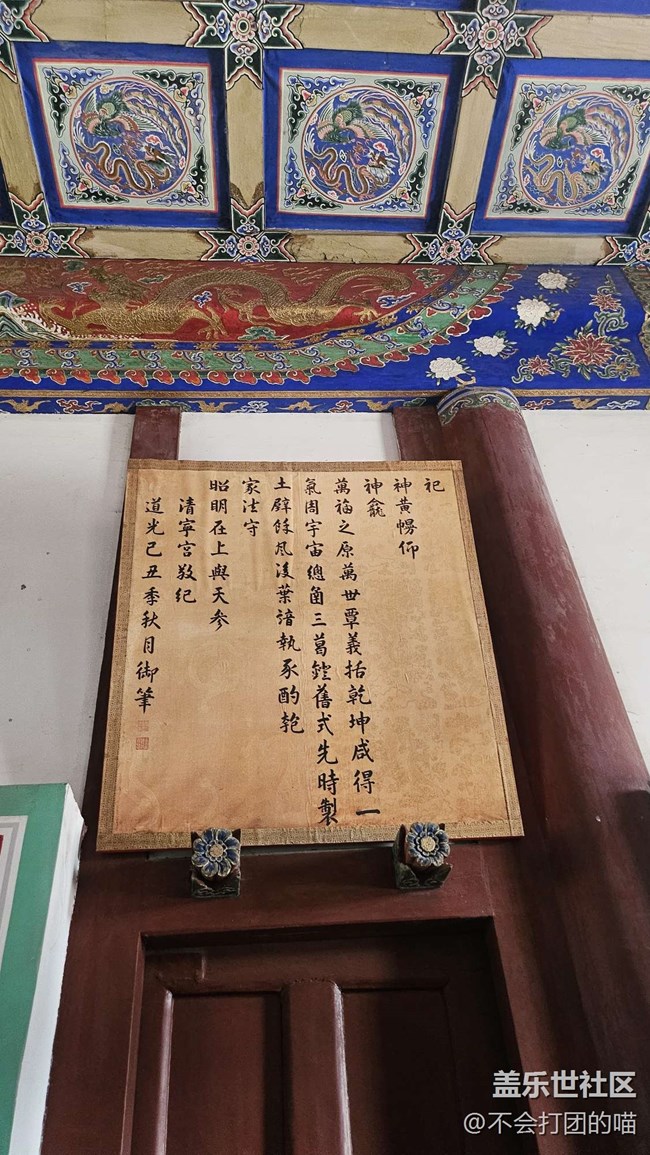 祀
神黄幌仰
神龕
萬福之原萬世覃義括乾坤咸得一
氣周宇宙總函三葛鐙舊式先時製
土壁餘風後葉諳執豕酌匏
家法守
昭明在上與天參
清寧宮敬紀
道光己丑季秋月御筆
盖乐世社区
@不会打团的喵